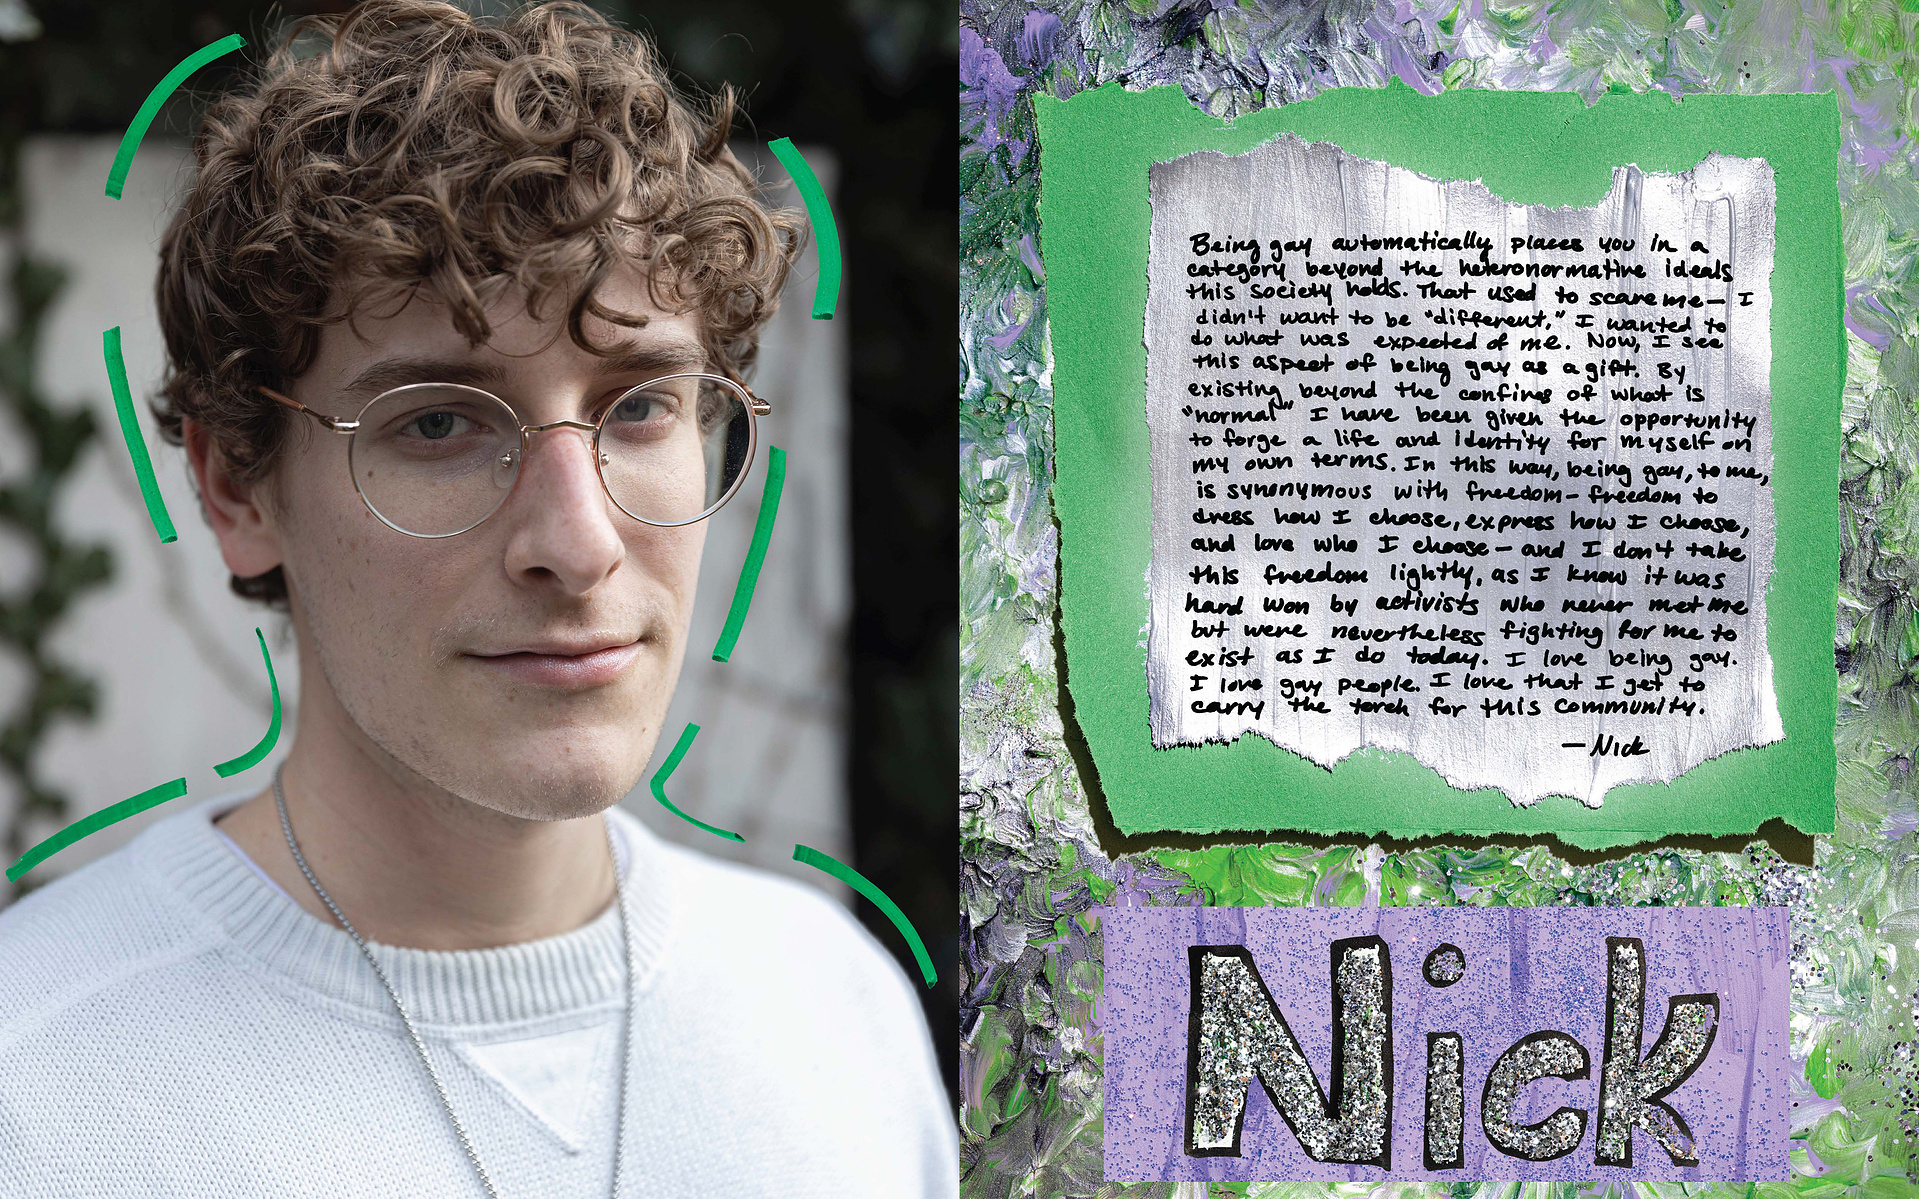 Being gay automatically places you in a
category beyond the heteronormative ideals
this society holds. That used to scare me— I
didn't want to be "different," I wanted to
do what was expected of me. Now, I see
this aspect of being gay as a gift. By
existing beyond the confines of what is
"normal" I have been given the opportunity
to forge a life and identity for myself on
my own terms. In this way, being gay, to me,
is synonymous with freedom— freedom to
dress how I choose, express how I choose,
and love who I choose— and I don't take
this freedom lightly, as I know it was
hard won by activists who never met me
but were nevertheless fighting for me to
exist as I do today. I love being gay.
I love gay people. I love that I get to
carry the torch for this community.
—Nick
Nick